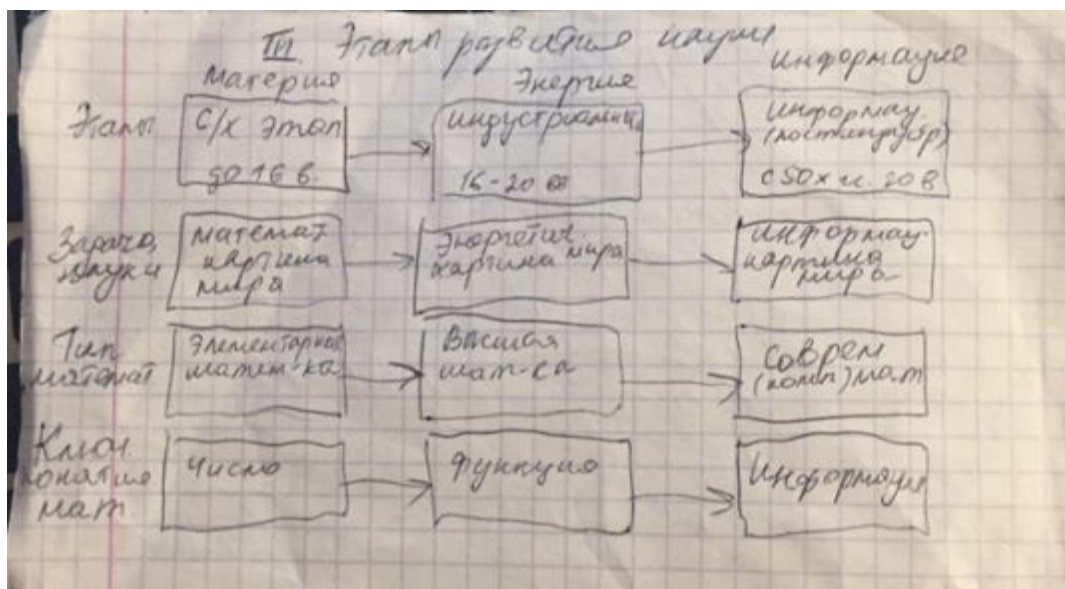 III Этапы развития науки
Материя Энергия Информация
Этапы
С/х этап
до 16 в.
индустриальный
16-20 вв
информац.
(постиндустр)
с 50х г. 20 в
Задача
науки
математ
картина
мира
Энергетич.
картина мира
информац.
картина
мира
Тип
математ
Элементарная
матем-ка
Высшая
мат-ка
Соврем
(комп) мат
Ключ.
понятие
мат.
число
функция
Информация